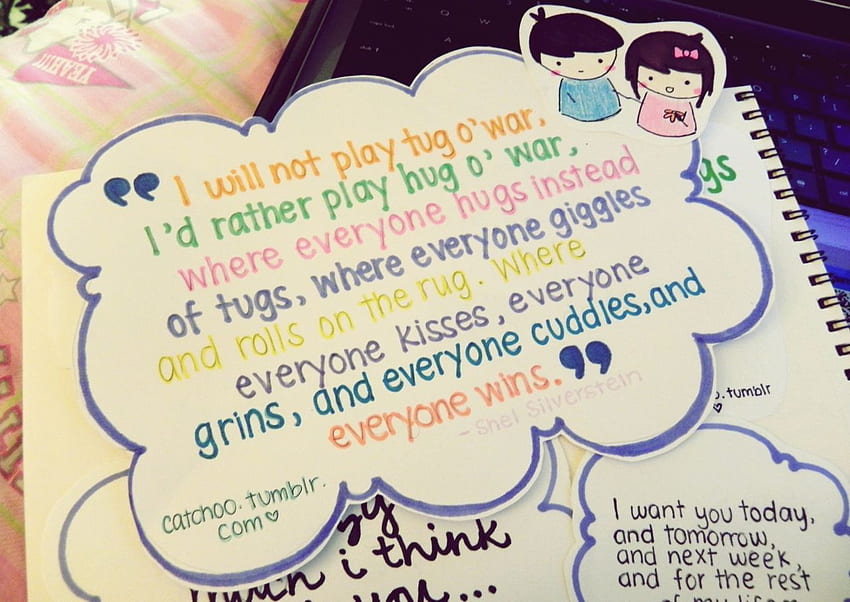 YEAH!!!
“ I will not play tug o' war,
I'd rather play hug o' war,
where everyone hugs instead
of tugs, where everyone giggles
and rolls on the rug. Where
everyone kisses, everyone
grins, and everyone cuddles, and
everyone wins. ”
- Shel Silverstein
catchoo.tumblr.
com♡
gs
.tumblr
♡
i think
I want you today,
and tomorrow,
and next week,
and for the rest
of my life